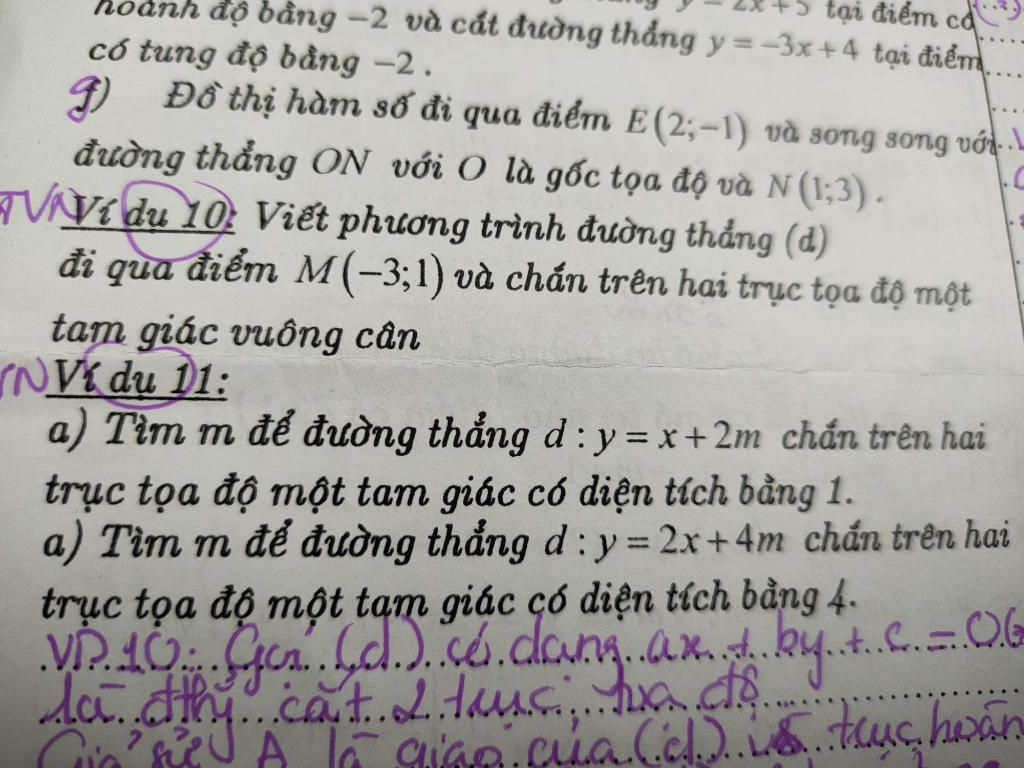 hoành độ bằng −2 và cắt đường thẳng y = −3x + 4 tại điểm
y = 2x + 5 tại điểm có
có tung độ bằng −2.
g) Đồ thị hàm số đi qua điểm E(2;−1) và song song với
đường thẳng ON với O là gốc tọa độ và N(1;3).
Ví dụ 10: Viết phương trình đường thẳng (d)
đi qua điểm M(−3;1) và chắn trên hai trục tọa độ một
tam giác vuông cân
Ví dụ 11:
a) Tìm m để đường thẳng d : y = x + 2m chắn trên hai
trục tọa độ một tam giác có diện tích bằng 1.
a) Tìm m để đường thẳng d : y = 2x + 4m chắn trên hai
trục tọa độ một tam giác có diện tích bằng 4.
VD 10: Gọi (d) có dạng ax + by + c = 0
là đthg cắt 2 trục tọa độ
Giả sử A là giao của (d) vs trục hoàn